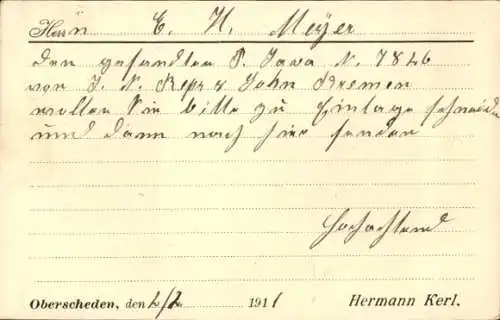 Herrn E. H. Meÿer
den gesandten P. Java N. 7846
von J. N. & John Bremen
wollen Sie bitte zu Einlage schneiden
und dann nach hier senden
Hochachtend
Oberscheden, den 2/2 1911 Hermann Kerl.